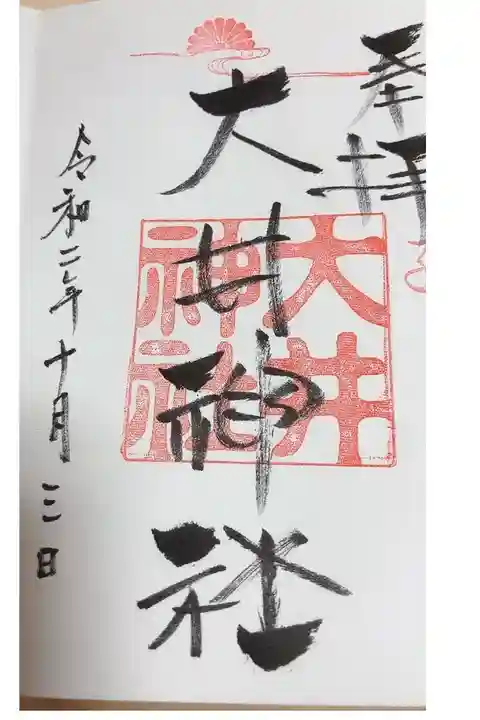 奉拝
大井神社
大井
神社
令和二年十月三日